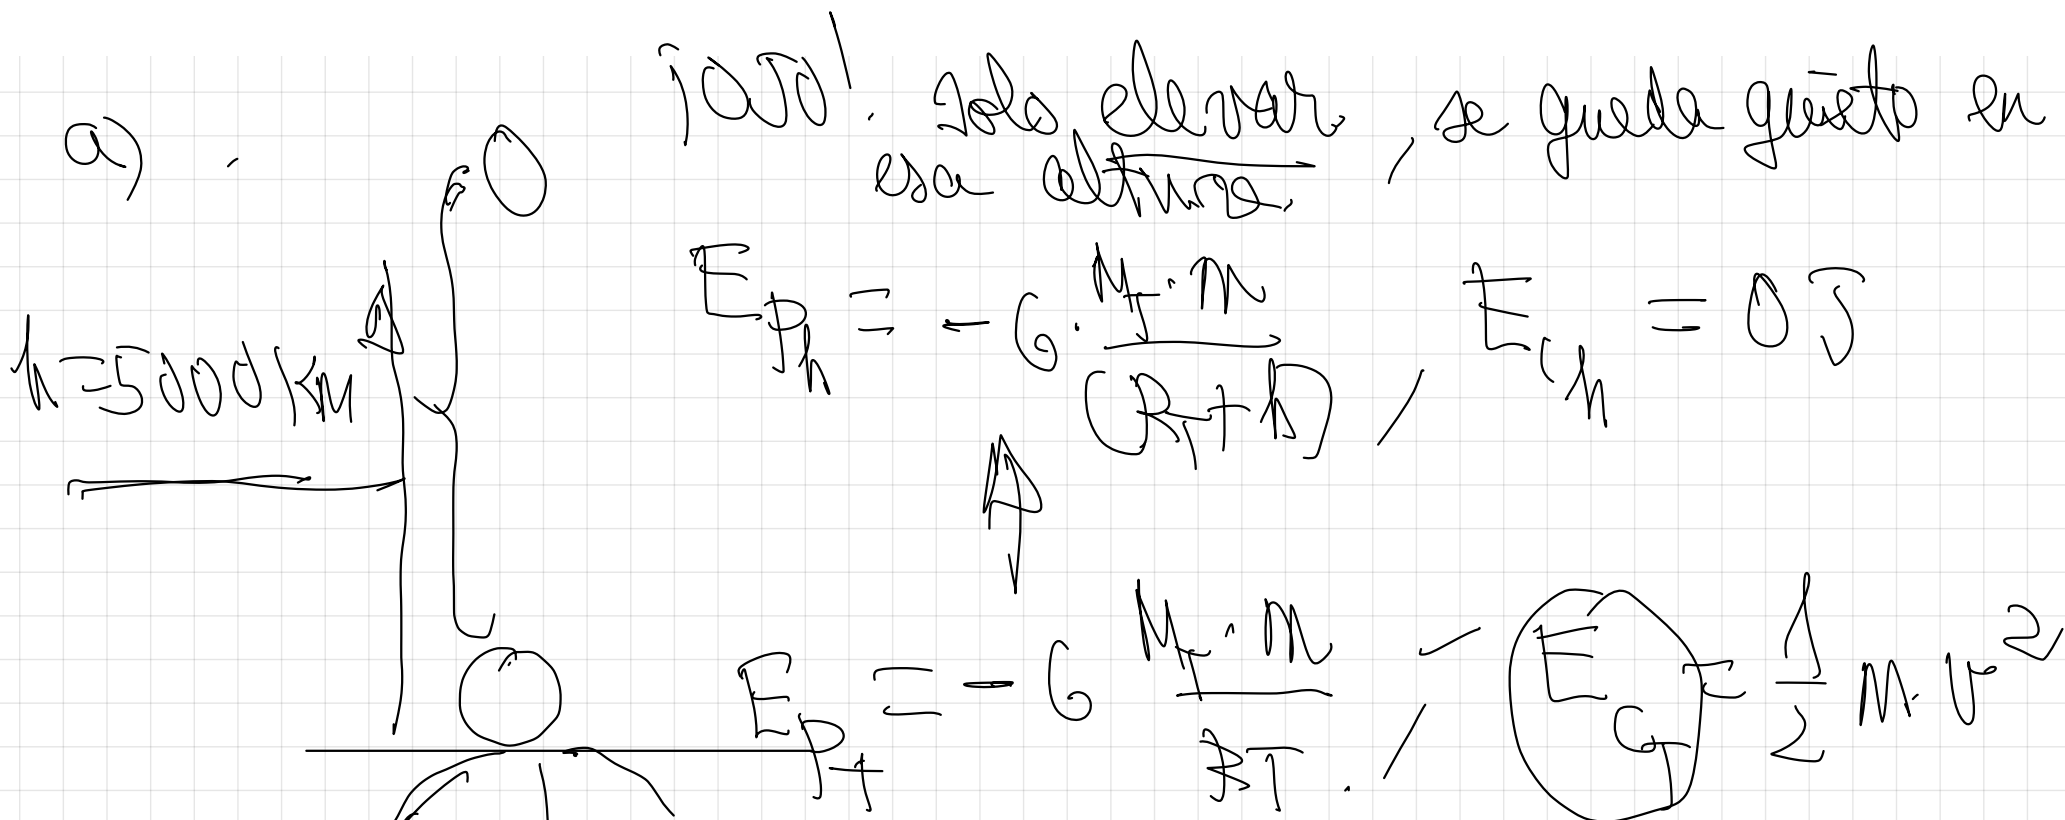 a) ¡OJO! Solo elevar, se queda quieto en
esa altura.
h = 5000 km
E_Ph = - G · M_T · m / (R_T + h) , E_Ch = 0 J
E_PT = - G M_T · m / R_T , E_CT = 1/2 m · v²